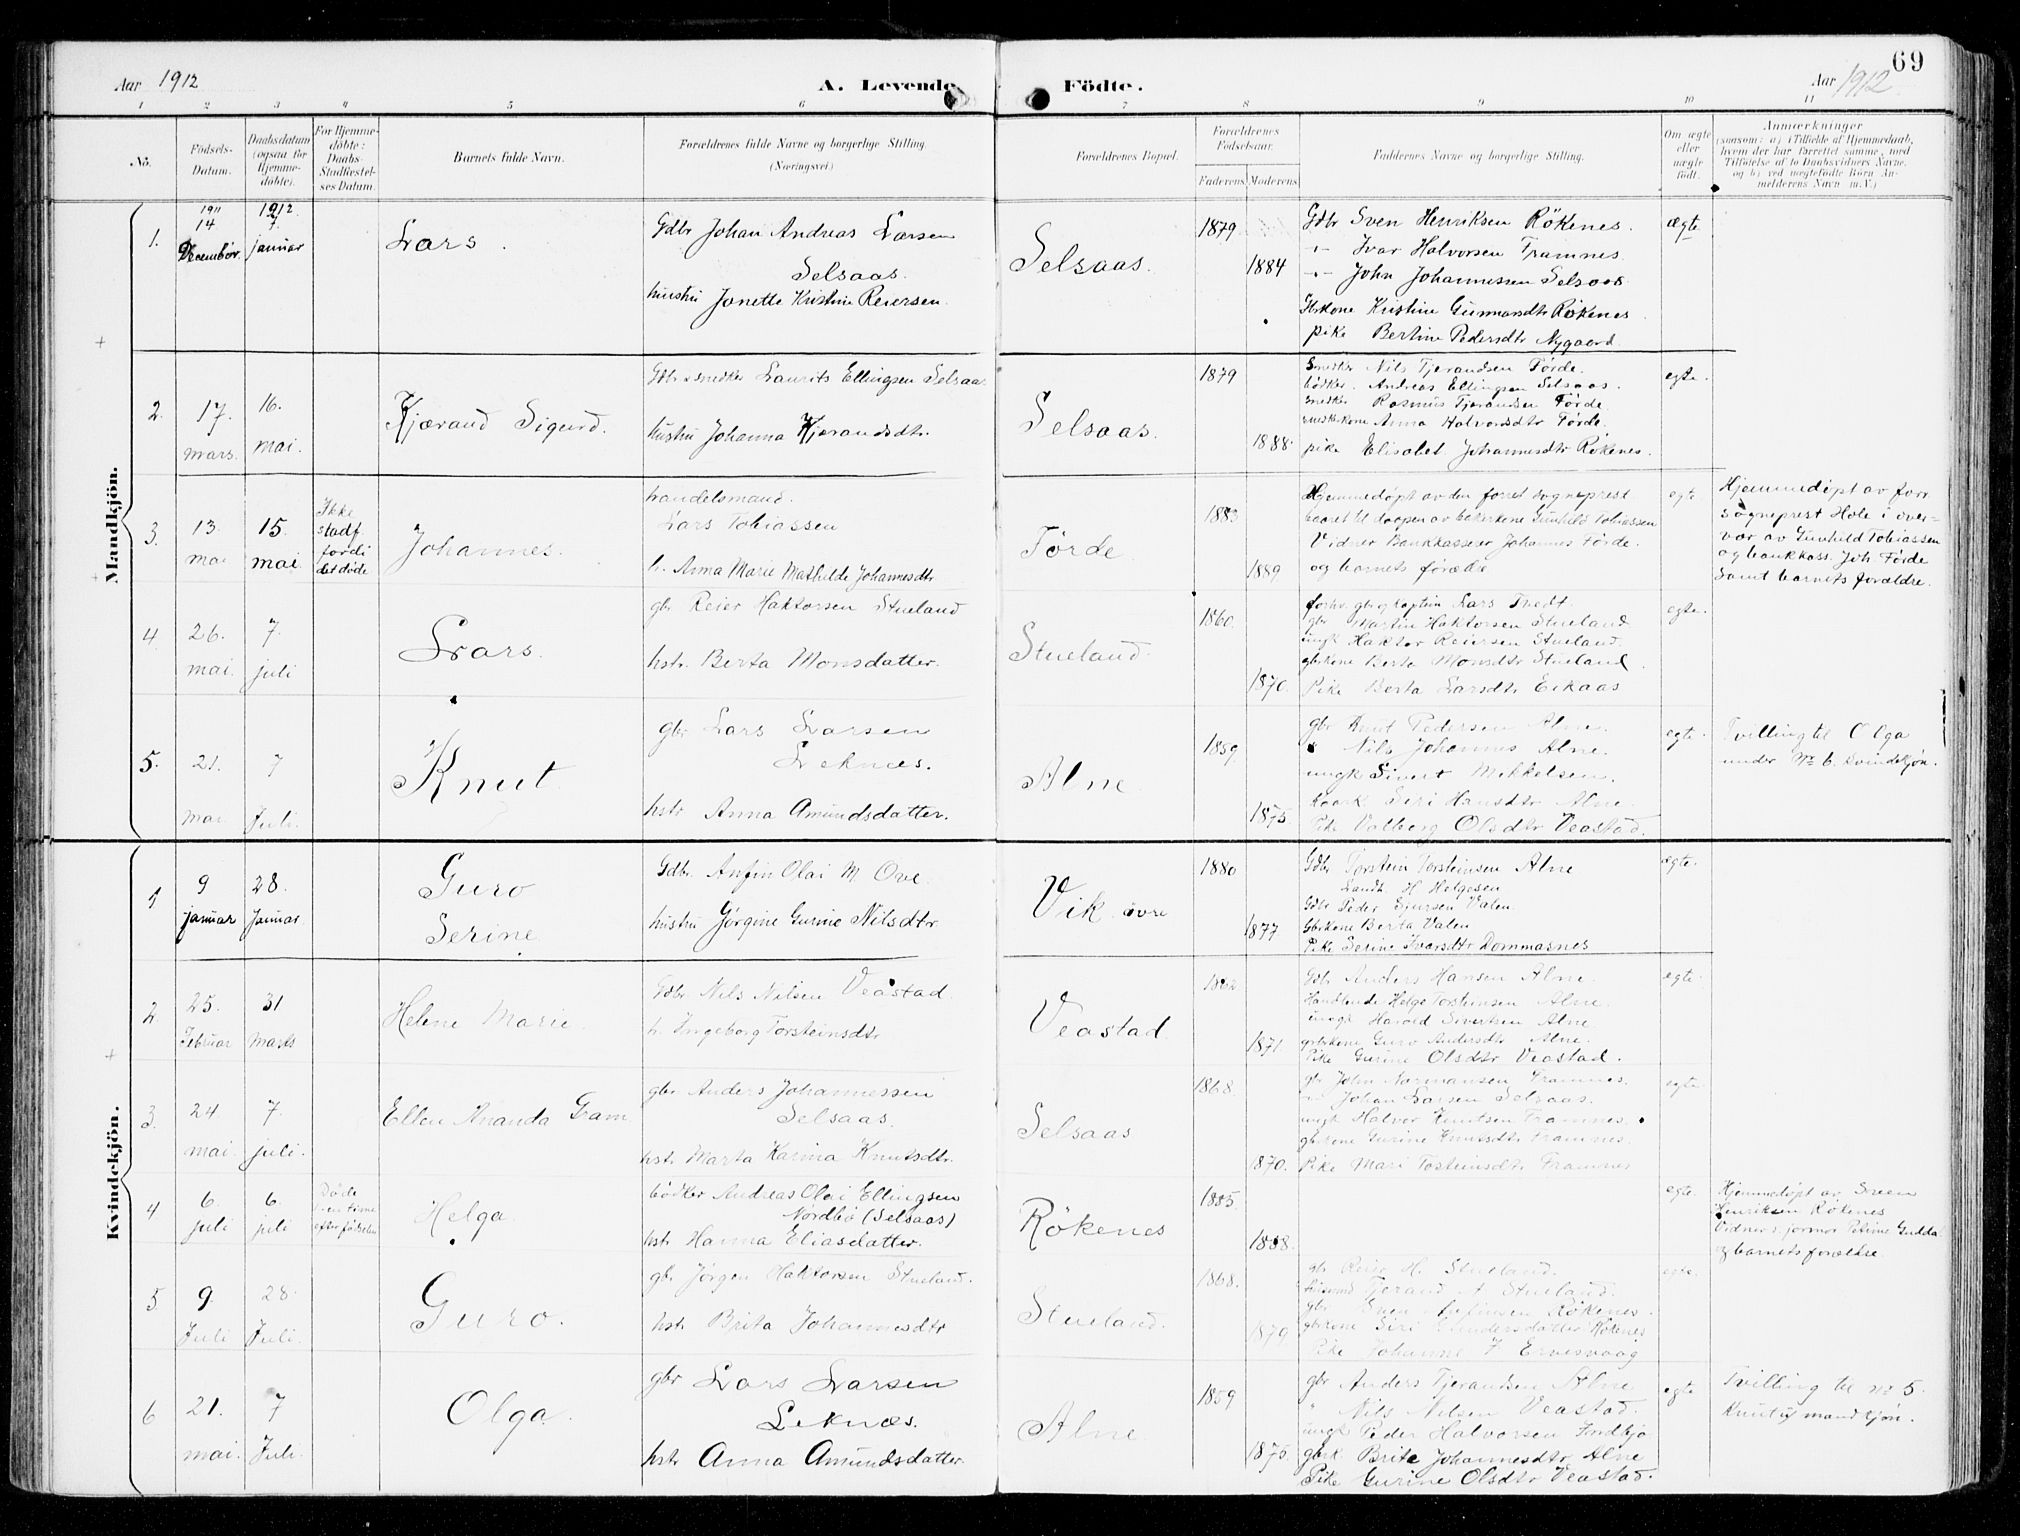 69
Aar 1912
A. Levende
Födte.
Aar 1912
1 2 3 4 5 6 7 8 9 10 11
No.
Födsels-Datum.
Daabsdatum (ogsaa for Hjemme-döbte).
For Hjemme-döbte: Daabs-Stadfæstel-ses Datum.
Barnets fulde Navn.
Forældrenes fulde Navne og borgerlige Stilling. (Næringsvei.)
Forældrenes Bopæl.
Forældrenes Födselsaar.
Faderens. Moderens.
Faddernes Navne og borgerlige Stilling.
Om ægte eller uægte födt.
Anmærkninger
(saasom: a) i Tilfælde af Hjemmedaab,
hvem der har forrettet samme, med
Tilföielse af to Daabsvidners Navne,
og b) ved uægtefödte Börn An-
melderens Navn m. V.)
Mandkjön.
1. 1911 14 December. 1912 7. januar
Lars.
Gdbr Johan Andreas Larsen
Selsaas.
hustru Jonette Kristine Reiersen.
Selsaas.
1879
1884
Gdbr Sven Henriksen Rökenes.
-"- Ivar Halvorsen Framnes.
-"- John Johannessen Selsaas
Gbrkone Kristine Gunnarsdtr Rökenes
pike Bertine Pedersdtr Nygaard
ægte
2. 17. mars. 16. mai.
Kjærand Sigurd.
Gdbr & snedker Laurits Ellingsen Selsaas
hustru Johanna Kjærandsdtr.
Selsaas.
1879
1888.
Snedker Nils Tjerandsen Förde.
bödker. Andreas Ellingsen Selsaas.
snedker Rasmus Tjerandsen Förde
snedkerkone Anna Halvorsdtr Förde.
pike Elisabet Johannesdtr Rökenes.
egte.
3. 13. mai 15. mai
Ikke stadf. fordi det döde
Johannes.
handelsmand.
Lars Tobiassen
h. Anna Marie Mathilde Johannesdtr
Förde.
1883
1889
Hjemmedöpt av den forret sogneprest
baaret til daapen av Gunhild Tobiassen
Vidner Bankkasserer Johannes Förde.
og barnets forældre
egte
Hjemmedöpt av forr
sogneprest Hole i over-
vær av Gunhild Tobiassen
og bankkass. Joh. Förde
samt barnets forældre.
4. 26. mai. 7. juli
Lars.
gbr Reier Haktorsen Stueland
hstr. Berta Monsdatter.
Stueland.
1860.
1870.
forhv. gbr og kaptein Lars Tvedt.
gbr Martin Haktorsen Stueland
ungk Haktor Reiersen Stueland.
gbrkone Berta Monsdtr Stueland.
Pike Berta Larsdtr Eikaas
egte.
5. 21. mai 7 Juli.
Knut
gbr Lars Larsen
Leknes.
hstr Anna Amundsdatter.
Alne.
1859.
1875.
gbr Knut Pedersen Alne.
" Nils Johannes Alne.
ungk Sivert Mikkelsen.
Siri Hansdtr Alne.
Pike Valborg Olsdtr Veastad.
egte.
Tvilling til Olga
under No 6. kvindekjön.
Kvindekjön.
1 9 januar 28. Januar
Guro
Serine
Gdbr. Anfin Olai M Ove.
hustru Jörgine Gurine Nilsdtr
Vik övre
1880
1877
Gdbr Torstein Torsteinsen Alne
Landh. H Helgesen
Gdbr Peder Sjursen Valen
Gbrkone Berta Valen
Pike Serine Ivarsdtr Dommasnes
ægte.
2. 25. Februar 31 Marts
Helene Marie.
Gdbr Nils Nilsen Veastad.
h. Ingeborg Torsteinsdtr
Veastad
1862
1871.
Gdbr Anders Hansen Alne.
Handlende Helge Torsteinsen Alne.
ungk Harald Sivertsen Alne
gbrkone Guro Andersdtr Alne.
Pike Gurine Olsdtr Veastad.
egte.
3. 24 mai. 7. juli.
Ellen Ananda Gram.
gbr Anders Johannessen
Selsaas.
hstr Marta Karina Knutsdtr.
Selsaas
1868.
1870.
gbr John Normansen Framnes.
-"- Johan Larsen Selsaas.
ungk Halvor Knutsen Framnes.
gbrkone Gurine Knutsdtr Framnes.
Pike Mari Tosteinsdtr Framnes
egte
4 6. juli 6. juli
Döde en time efter födselen
Helga
bödker Andreas Olai Ellingsen
Nordbö (Selsaas)
hstr. Hanna Eliasdatter.
Rökenes
1885.
1888.
egte.
Hjemmedöpt av Sveen
Henriksen Rökenes
Vidner: jormor Petrine Gudda
og barnets forældre.
5. 9. Juli 28. Juli.
Guro.
gbr Jörgen Haktorsen Stueland.
hstr Brita Johannesdtr
Stueland.
1868.
1879
gbr Reier H. Stueland.
Tjerand A Stueland.
gbr Sven Rökenes.
gbrkone Siri Rökenes
Pike Johanne J Ervesvaag
egte.
6 21. mai. 7 Juli.
Olga.
gbr Lars Larsen
Leknes.
hstr Anna Amundsdatter.
Alne
1859
1875.
gbr Anders Tjerandsen Alne
" Nils Nilsen Veastad.
ungk Peder Halvorsen
gbrk Brita Johannesdtr Alne
Pike Gurine Olsdtr Veastad.
egte
Tvilling til no 5.
Knut mandkjön.